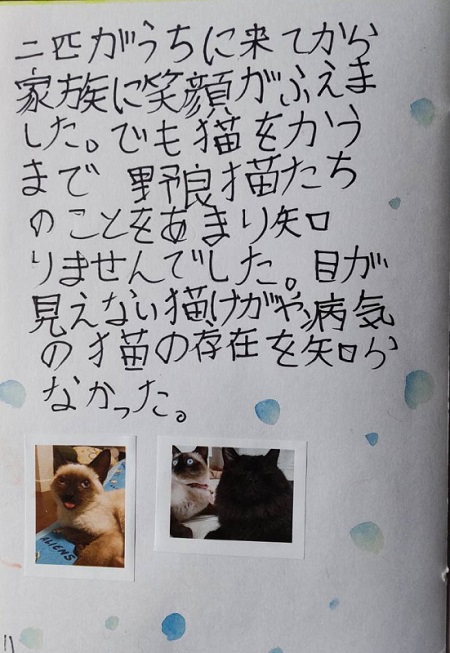 二匹がうちに来てから
家族に笑顔がふえま
した。でも猫をかう
まで 野良猫たち
のことをあまり知
りませんでした。目が
見えない猫けがや病気
の猫の存在を知ら
なかった。
ALIENS
11